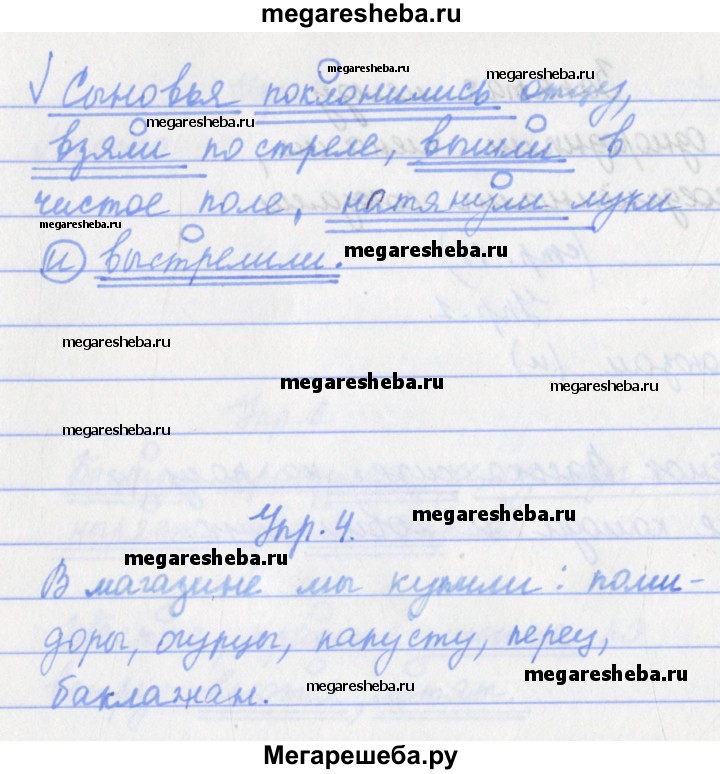 megaresheba.ru
megaresheba.ru
√ Сыновья поклонились отцу,
megaresheba.ru
megaresheba.ru
взяли по стреле, вышли в
чистое поле, натянули луки
megaresheba.ru
и выстрелили.
megaresheba.ru
megaresheba.ru
megaresheba.ru
megaresheba.ru
megaresheba.ru
Упр. 4.
megaresheba.ru
megaresheba.ru
В магазине мы купили: поми-
доры, огурцы, капусту, перец,
megaresheba.ru
баклажан.
megaresheba.ru
Мегарешеба.ру